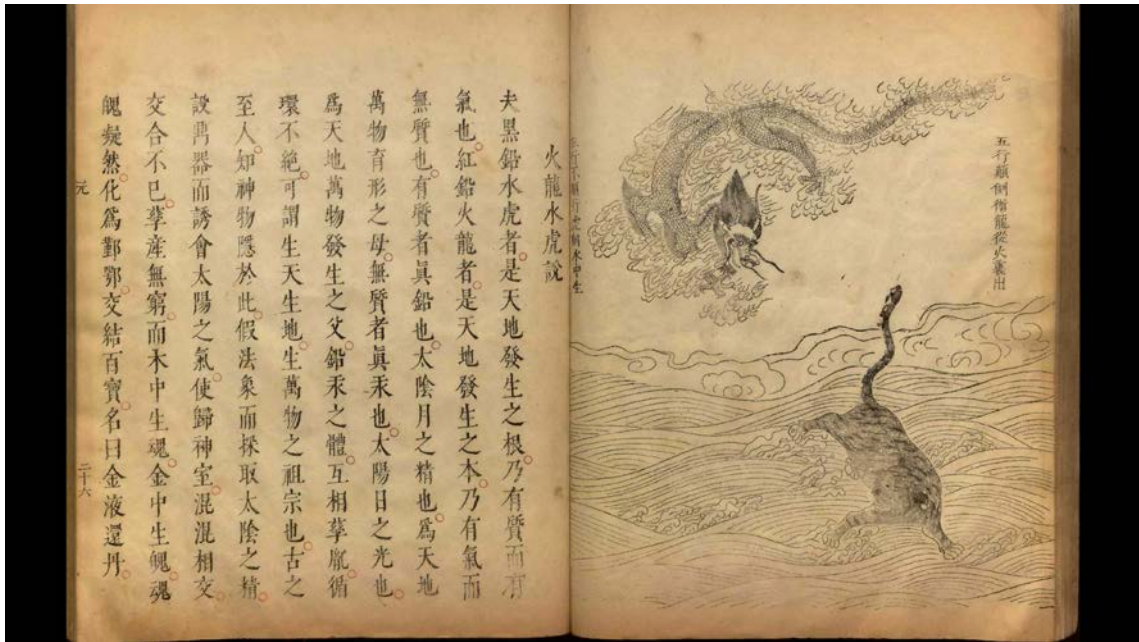 五行顛倒術龍從火裏出
五行不順行虎向水中生
火龍水虎說
夫黑鉛水虎者。是天地發生之根。乃有質而有
氣也。紅鉛火龍者。是天地發生之本。乃有氣而
無質也。有質者眞鉛也。太陰月之精也。爲天地
萬物育形之母。無質者眞汞也。太陽日之光也。
爲天地萬物發生之父。鉛汞之體。互相孳胤。循
環不絕。可謂生天生地。生萬物之祖宗也。古之
至人。知神物隱於此。假法象而採取太陰之精。
設鼎器而誘會太陽之氣。使歸神室。混混相交。
交合不已。孳產無窮。而木中生魂。金中生魄。魂
魄凝然。化爲鄞鄂。交結百寶。名曰金液還丹。
元
二十六